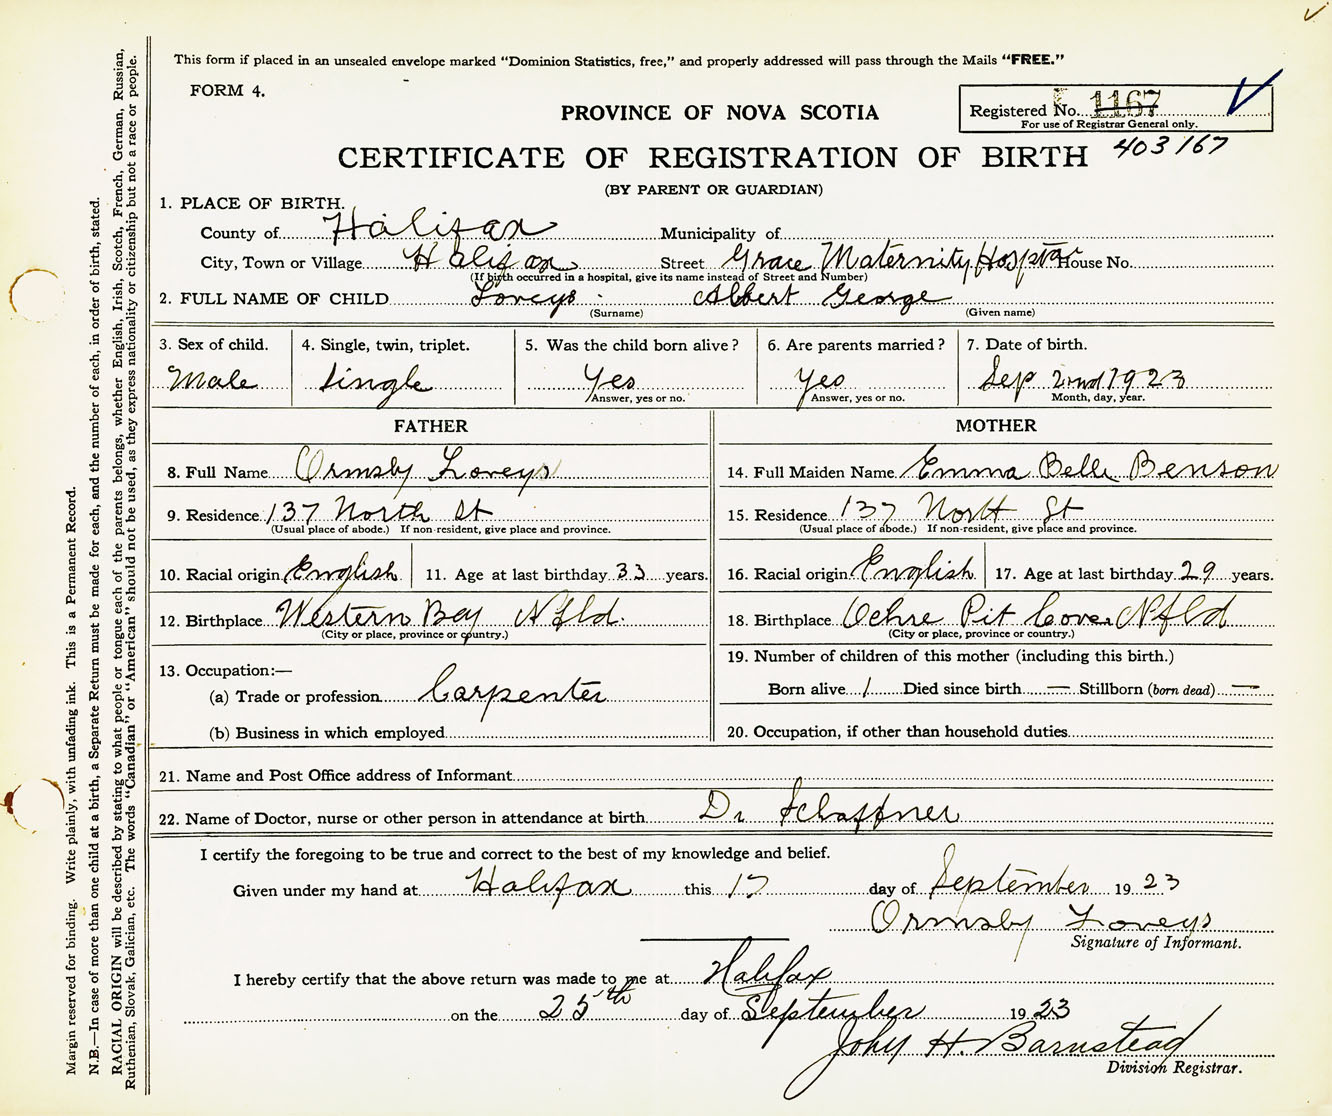 This form if placed in an unsealed envelope marked "Dominion Statistics, free," and properly addressed will pass through the Mails "FREE."
FORM 4.
PROVINCE OF NOVA SCOTIA
Registered No. 1167
For use of Registrar General only.
CERTIFICATE OF REGISTRATION OF BIRTH 403167
(BY PARENT OR GUARDIAN)
1. PLACE OF BIRTH.
County of Halifax Municipality of
City, Town or Village Halifax Street Grace Maternity Hospital House No.
(If birth occurred in a hospital, give its name instead of Street and Number)
2. FULL NAME OF CHILD Loveys Albert George
(Surname) (Given name)
3. Sex of child. 4. Single, twin, triplet. 5. Was the child born alive? 6. Are parents married? 7. Date of birth.
Male Single Yes Yes Sep 2nd 1923
Answer, yes or no. Answer, yes or no. Month, day, year.
FATHER MOTHER
8. Full Name Ormsby Loveys 14. Full Maiden Name Emma Belle Benson
9. Residence 137 North St 15. Residence 137 North St
(Usual place of abode.) If non-resident, give place and province. (Usual place of abode.) If non-resident, give place and province.
10. Racial origin English 11. Age at last birthday 33 years. 16. Racial origin English 17. Age at last birthday 29 years.
12. Birthplace Western Bay Nfld. 18. Birthplace Ochre Pit Cove Nfld
(City or place, province or country.) (City or place, province or country.)
13. Occupation:— 19. Number of children of this mother (including this birth.)
(a) Trade or profession Carpenter Born alive 1 Died since birth — Stillborn (born dead) —
(b) Business in which employed 20. Occupation, if other than household duties
21. Name and Post Office address of Informant
22. Name of Doctor, nurse or other person in attendance at birth Dr Schaffner
I certify the foregoing to be true and correct to the best of my knowledge and belief.
Given under my hand at Halifax this 17 day of September 1923
Ormsby Loveys
Signature of Informant.
I hereby certify that the above return was made to me at Halifax
on the 25th day of September 1923
John H. Barnstead
Division Registrar.
Margin reserved for binding. Write plainly, with unfading ink. This is a Permanent Record.
N.B.—In case of more than one child at a birth, a Separate Return must be made for each, and the number of each, in order of birth, stated.
RACIAL ORIGIN will be described by stating to what people or tongue each of the parents belongs, whether English, Irish, Scotch, French, German, Russian,
Ruthenian, Slovak, Galician, etc. The words "Canadian" or "American" should not be used, as they express nationality or citizenship but not a race or people.